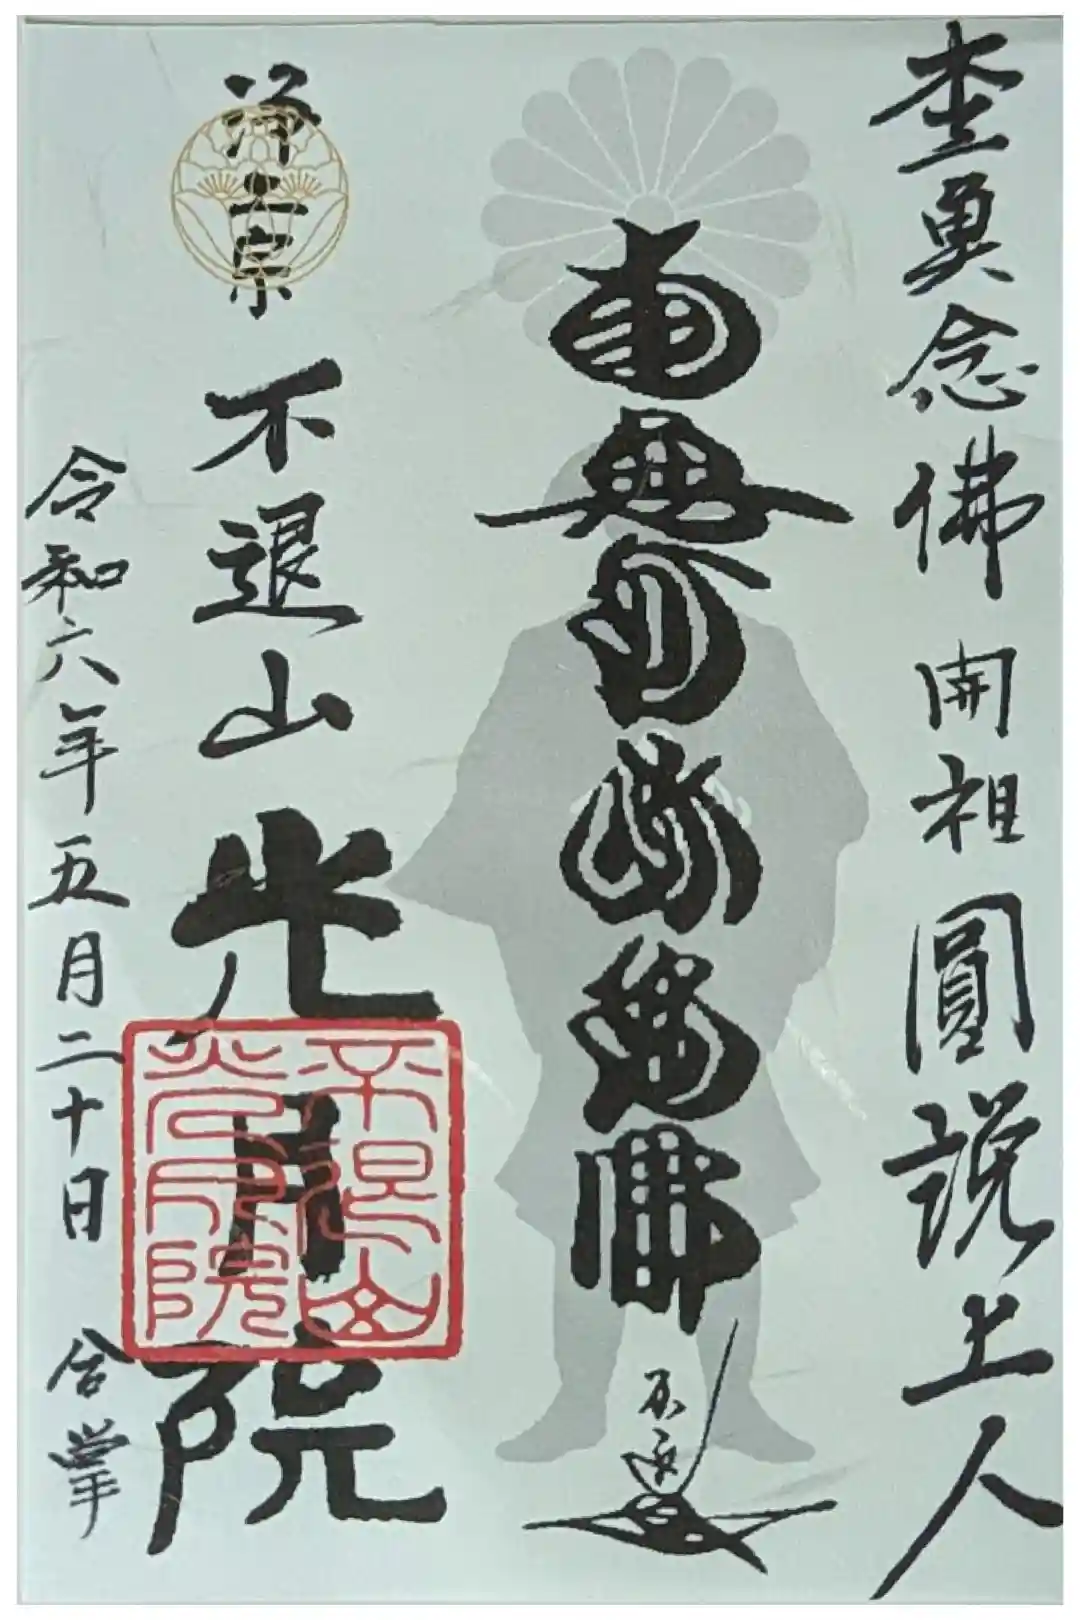 杢魚念佛 開祖 圓説上人
南無阿弥陀佛
浄土宗 不退山 光月院
不退山
光月院
令和六年五月二十日 合掌